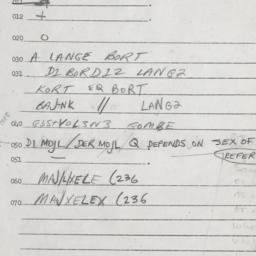 012 +
020 O
030 A LANGE BORT
031 DI BORDIZ LANGZ
KORT EQ BORT
BAJNK // LANGZ
040 GOMBE
050 DI MOJL / DER MOJL Q DEPENDS ON SEX OF
051 REFER
060 (236
070 MAJYELEX (236